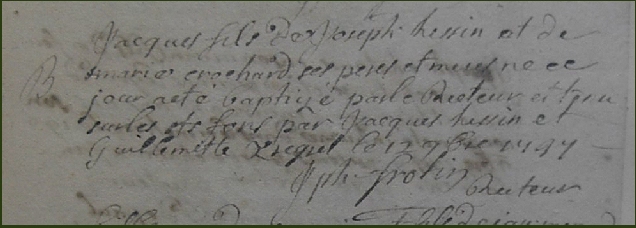 Jacques fils de Joseph hessin et de
B marie crochard ses peres et meres ne ce
jour a eté baptizé par le Recteur et tenu
sur les sts fons par Jacques hessin et
Guillemette le 12 9bre 1747
Jph frotin Recteur